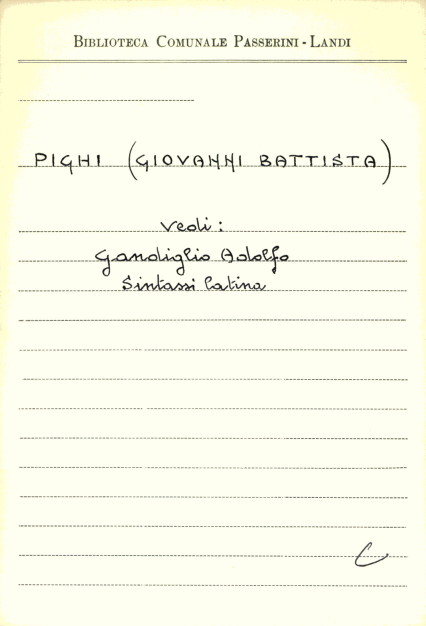 BIBLIOTECA COMUNALE PASSERINI - LANDI
PIGHI (GIOVANNI BATTISTA)
Vedi:
Gandiglio Adolfo
Sintassi latina
C